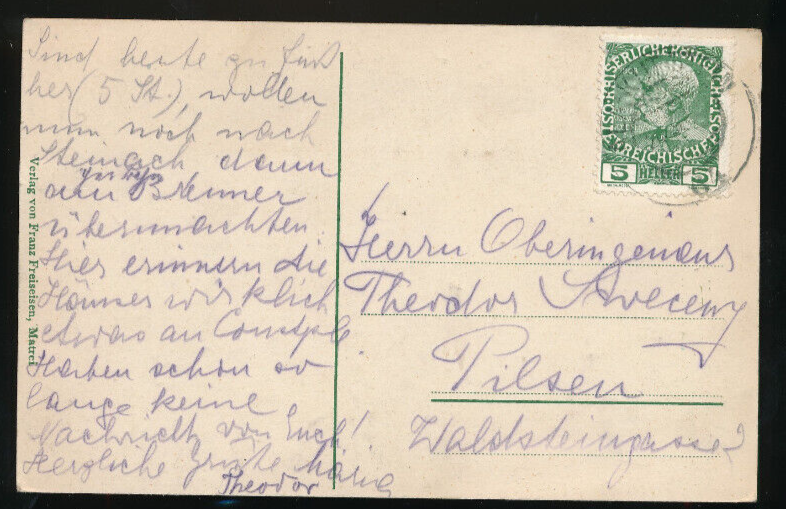 Sind heute zu Fuß
her (5 St.), wollen
nun noch nach
Steinach dann
am Brenner
übernachten.
Hier erinnern die
Häuser wirklich
etwas an
Haben schon so
lange keine
Nachricht von Euch!
Herzliche Grüße Maria
Theodor
Verlag von Franz Freiseisen, Matrei
KAISERLICHE KÖNIGLICHE ÖSTERREICHISCHE POST
5 HELLER 5
Herrn Oberingenieur
Theodor
Pilsen
Waldsteingasse 2